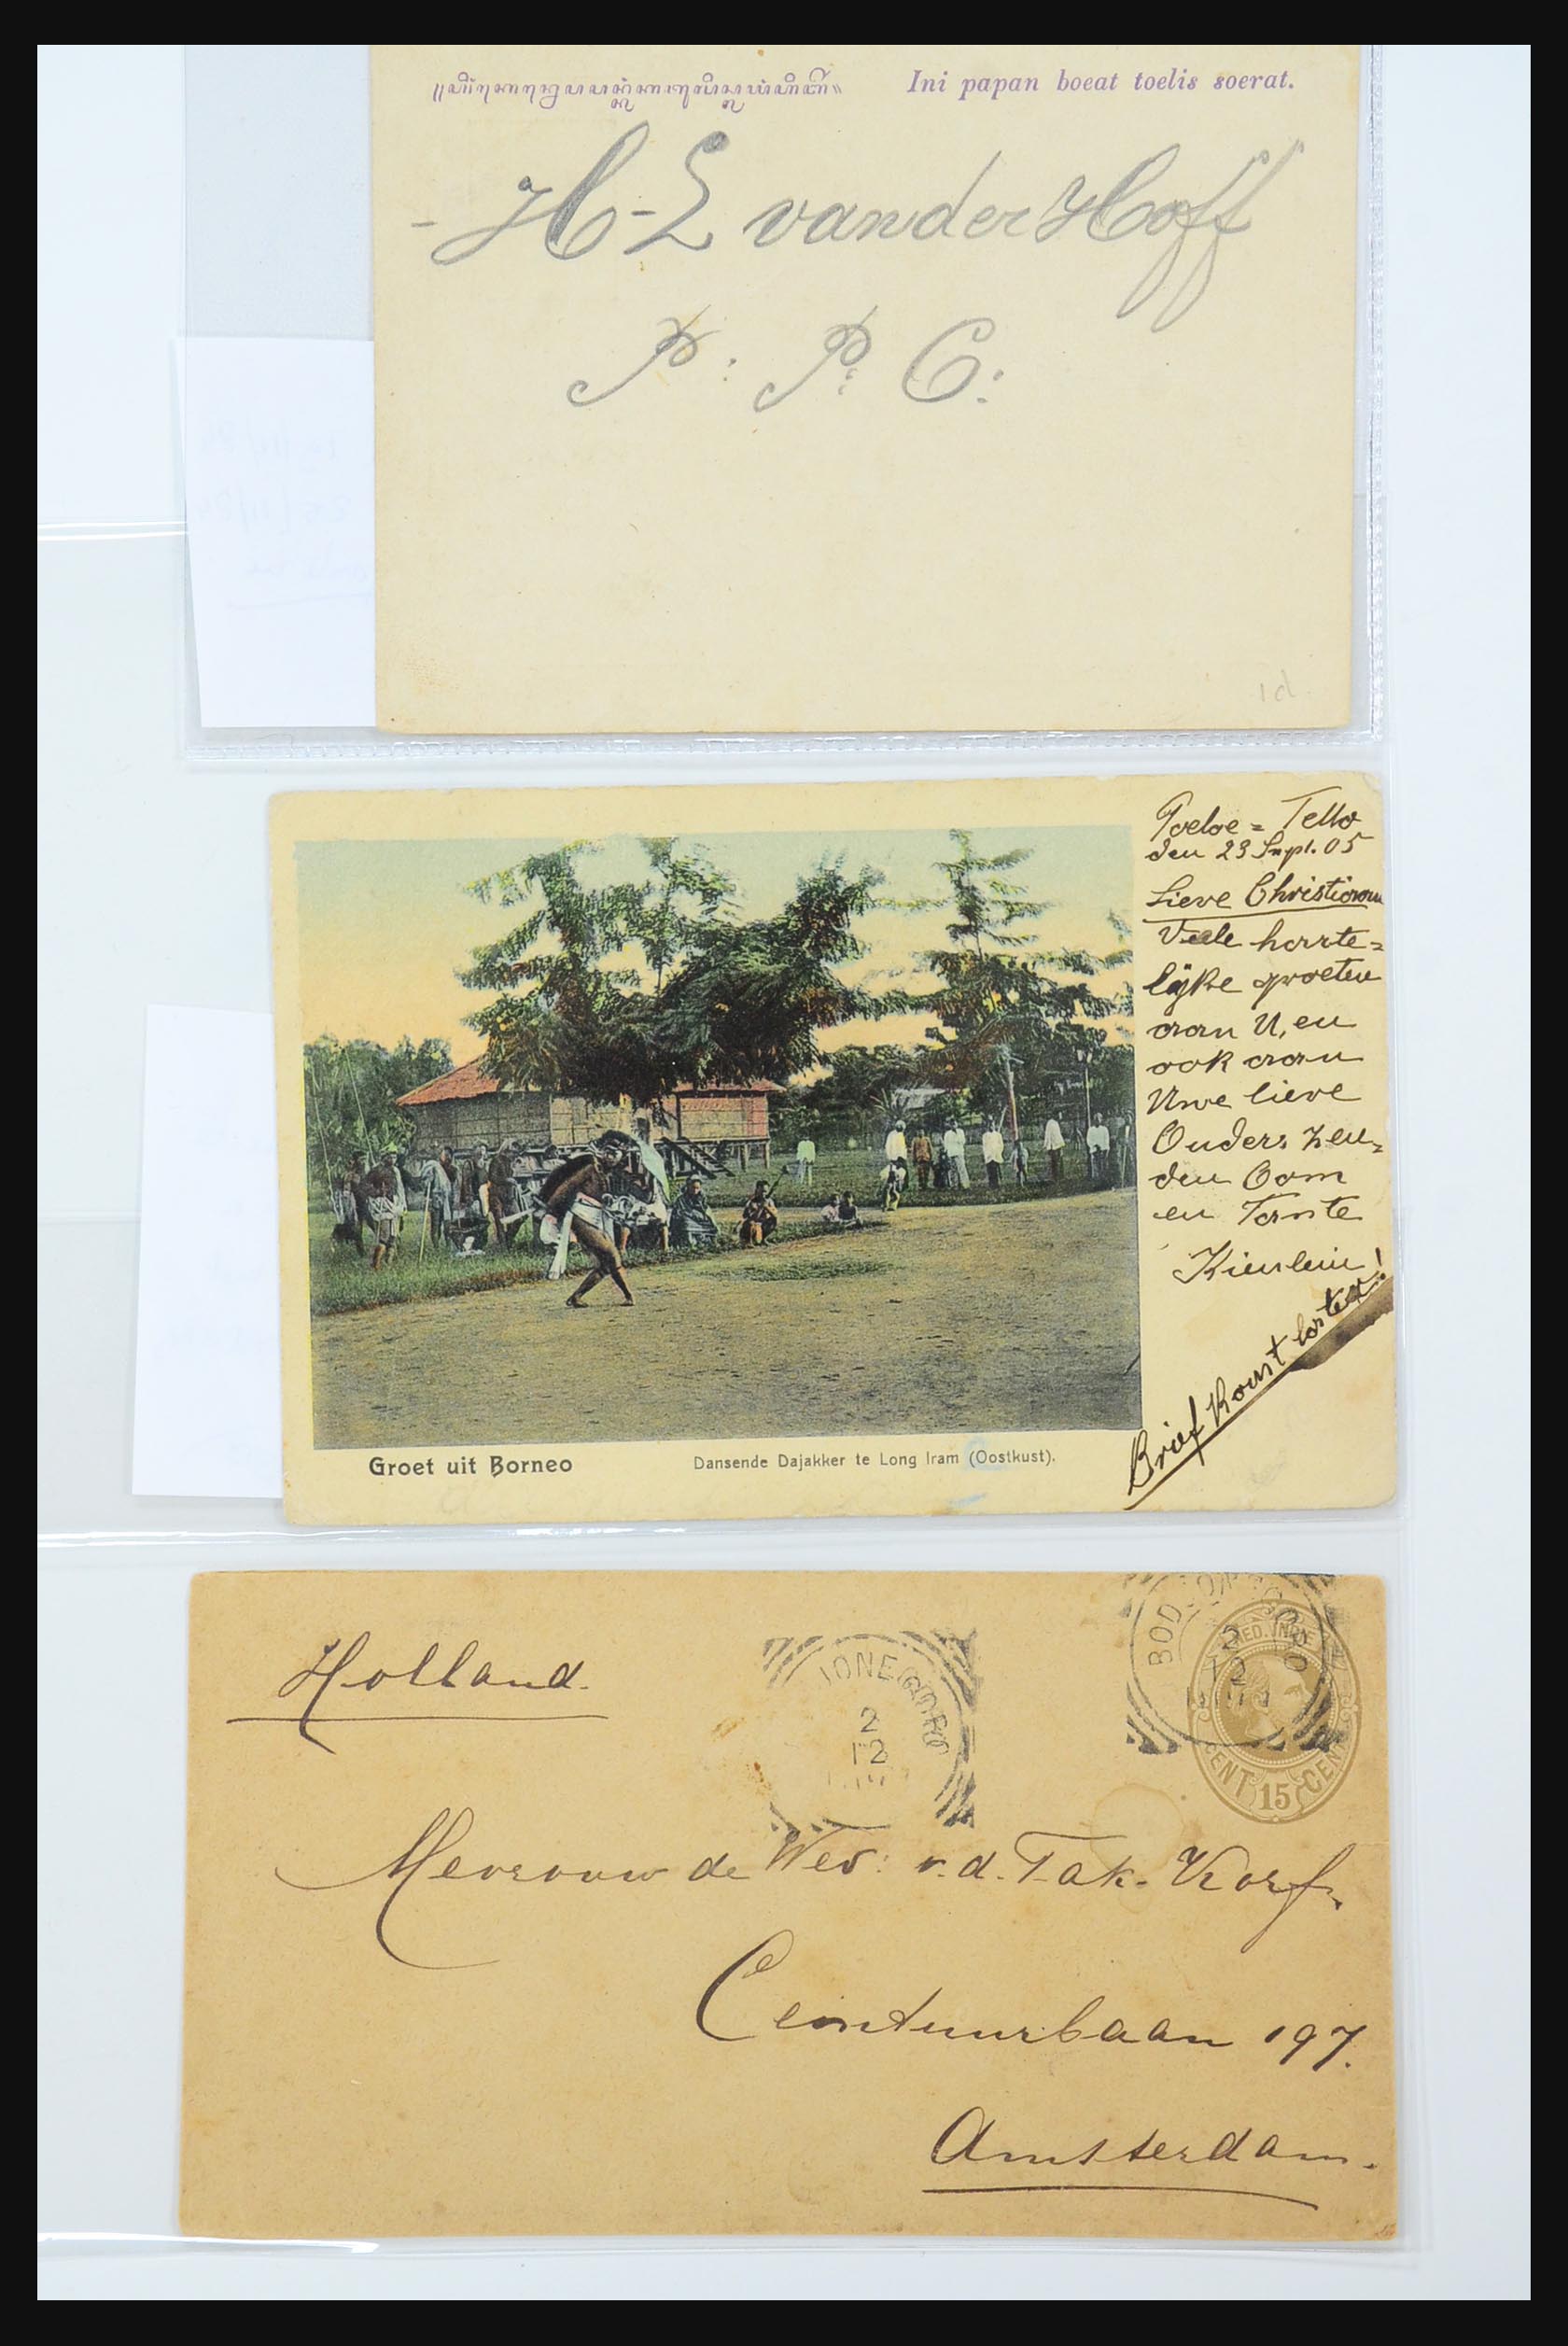 Ini papan boeat toelis soerat.
- H-L van der Hoff
P: P: C:
1d
Poeloe = Tello
den 23 Sept. 05
Lieve Christiaan
Veele harte=
lijke groeten
aan U, en
ook aan
Uwe lieve
Ouders zen=
den Oom
en Tante
Kienlein!
Brief komt later
Groet uit Borneo
Dansende Dajakker te Long Iram (Oostkust).
Holland.
BOD
2
12
NED. INDIE
CENT 15 CENT
2
12
Mevrouw de Wed: v.d. Tak-Korf.
Ceintuurbaan 197.
Amsterdam.